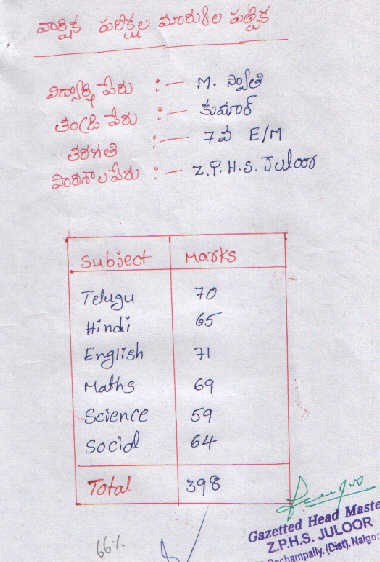 వార్షిక పరీక్షల మార్కుల పట్టిక
విద్యార్థి పేరు :- M. స్వాతి
తండ్రి పేరు :- కుమార్
తరగతి :- 7వ E/M
పాఠశాల పేరు :- Z.P.H.S. Juloor
Subject Marks
Telugu 70
Hindi 65
English 71
Maths 69
Science 59
Social 64
Total 398
66%
Gazetted Head Maste
Z.P.H.S. JULOOR
ochampally, (Dist), Nalgo